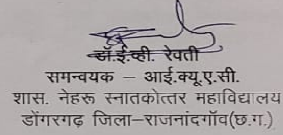 डॉ.ई.व्ही. रेवती
समन्वयक – आई.क्यू.ए.सी.
शास. नेहरू स्नातकोत्तर महाविद्यालय
डोंगरगढ़ जिला–राजनांदगॉव(छ.ग.)